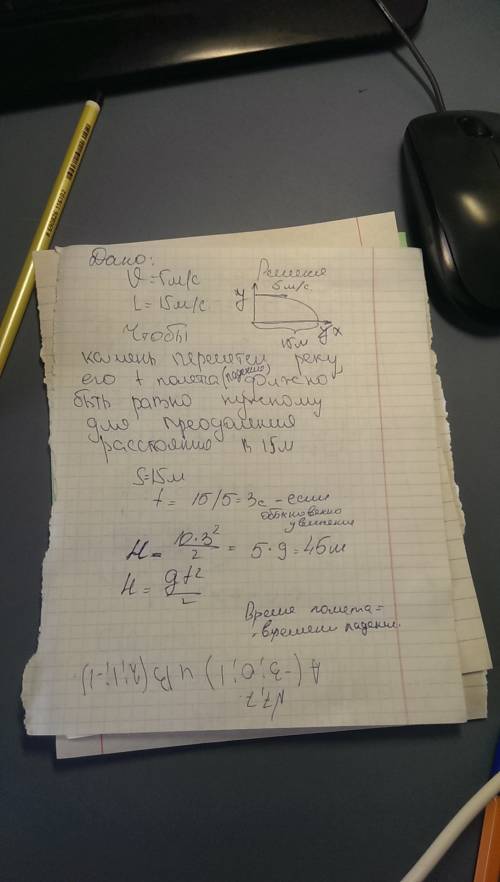 Дано:
V = 5м/с
L = 15м/с
Решение
5 м/с
y
x
15м
Чтобы
камень перелетел реку
его t полета (падения) должно
быть равно нужному
для преодаления
расстояние в 15м
S=15м
t = 15/5 = 3с - если
обыкновенно
движения
H = 10·3²/2 = 5·9 = 45м
H = gt²/2
Время полета =
времени падения.
A (-3; 0; 1) и B (2; 1; -1)